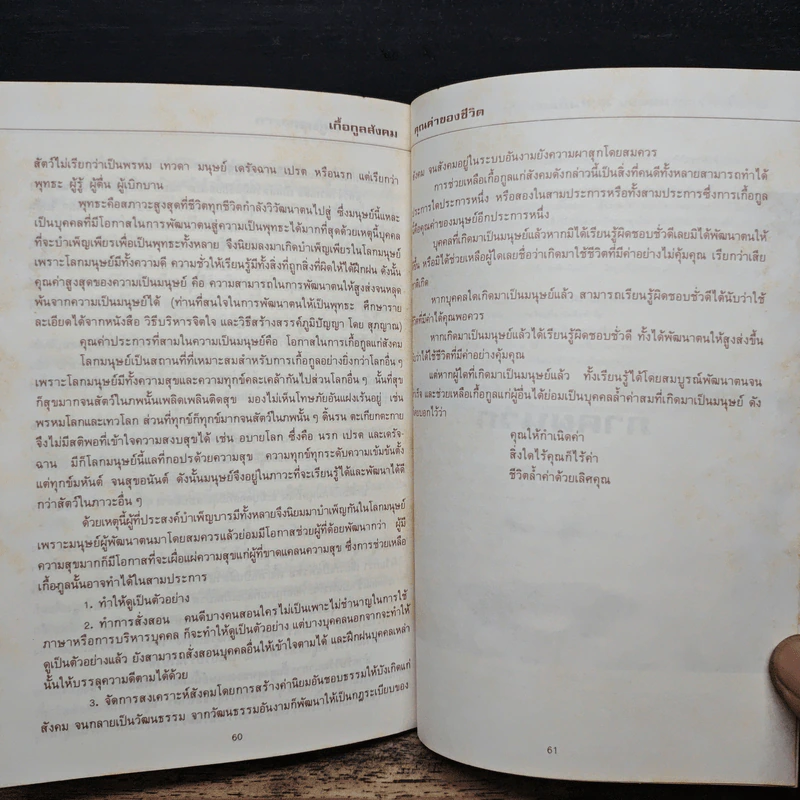 เกื้อกูลสังคม
สัตว์ไม่เรียกว่าเป็นพรหม เทวดา มนุษย์ เดรัจฉาน เปรต หรือนรก แต่เรียกว่า
พุทธะ ผู้รู้ ผู้ตื่น ผู้เบิกบาน
พุทธะคือสภาวะสูงสุดที่ชีวิตทุกชีวิตกำลังวิวัฒนาตนไปสู่ ซึ่งมนุษย์นี้และ
เป็นบุคคลที่มีโอกาสในการพัฒนาตนสู่ความเป็นพุทธะได้มากที่สุดด้วยเหตุนี้บุคคล
ที่จะบำเพ็ญเพียรเพื่อเป็นพุทธะทั้งหลาย จึงนิยมลงมาเกิดบำเพ็ญเพียรในโลกมนุษย์
เพราะโลกมนุษย์มีทั้งความดี ความชั่วให้เรียนรู้มีทั้งสิ่งที่ถูกสิ่งที่ผิดให้ได้ฝึกฝน ดังนั้น
คุณค่าสูงสุดของความเป็นมนุษย์ คือ ความสามารถในการพัฒนาตนให้สูงส่งจนหลุด
พ้นจากความเป็นมนุษย์ได้ (ท่านที่สนใจในการพัฒนาตนให้เป็นพุทธะ ศึกษาราย
ละเอียดได้จากหนังสือ วิธีบริหารจิตใจ และวิธีสร้างสรรค์ภูมิปัญญา โดย สุภูญาณ)
คุณค่าประการที่สามในความเป็นมนุษย์คือ โอกาสในการเกื้อกูลแก่สังคม
โลกมนุษย์เป็นสถานที่ที่เหมาะสมสำหรับการเกื้อกูลอย่างยิ่งกว่าโลกอื่น ๆ
เพราะโลกมนุษย์มีทั้งความสุขและความทุกข์คละเคล้ากันไปส่วนโลกอื่น ๆ นั้นที่สุข
ก็สุขมากจนสัตว์ในภพนั้นเพลิดเพลินติดสุข มองไม่เห็นโทษภัยอันแฝงเร้นอยู่ เช่น
พรหมโลกและเทวโลก ส่วนที่ทุกข์ก็ทุกข์มากจนสัตว์ในภพนั้น ๆ ดิ้นรน ตะเกียกตะกาย
จึงไม่มีสติพอที่เข้าใจความสงบสุขได้ เช่น อบายโลก ซึ่งคือ นรก เปรต และเดรัจ-
ฉาน มีก็โลกมนุษย์นี้แลที่กอปรด้วยความสุข ความทุกข์ทุกระดับความเข้มข้นตั้ง
แต่ทุกข์มหันต์ จนสุขอนันต์ ดังนั้นมนุษย์จึงอยู่ในภาวะที่จะเรียนรู้ได้และพัฒนาได้ดี
กว่าสัตว์ในภาวะอื่น ๆ
ด้วยเหตุนี้ผู้ที่ประสงค์บำเพ็ญบารมีทั้งหลายจึงนิยมมาบำเพ็ญกันในโลกมนุษย์
เพราะมนุษย์ผู้พัฒนาตนมาโดยสมควรแล้วย่อมมีโอกาสช่วยผู้ที่ด้อยพัฒนากว่า ผู้มี
ความสุขมากก็มีโอกาสที่จะเผื่อแผ่ความสุขแก่ผู้ที่ขาดแคลนความสุข ซึ่งการช่วยเหลือ
เกื้อกูลนั้นอาจทำได้ในสามประการ
1. ทำให้ดูเป็นตัวอย่าง
2. ทำการสั่งสอน คนดีบางคนสอนใครไม่เป็นเพราะไม่ชำนาญในการใช้
ภาษาหรือการบริหารบุคคล ก็จะทำให้ดูเป็นตัวอย่าง แต่บางบุคคลนอกจากจะทำให้
ดูเป็นตัวอย่างแล้ว ยังสามารถสั่งสอนบุคคลอื่นให้เข้าใจตามได้ และฝึกฝนบุคคลเหล่า
นั้นให้บรรลุความดีตามได้ด้วย
3. จัดการสงเคราะห์สังคมโดยการสร้างค่านิยมอันชอบธรรมให้บังเกิดแก่
สังคม จนกลายเป็นวัฒนธรรม จากวัฒนธรรมอันงามก็พัฒนาให้เป็นกฎระเบียบของ
60
คุณค่าของชีวิต
สังคม จนสังคมอยู่ในระบบอันงามยังความผาสุกโดยสมควร
การช่วยเหลือเกื้อกูลแก่สังคมดังกล่าวนี้เป็นสิ่งที่คนดีทั้งหลายสามารถทำได้
ประการใดประการหนึ่ง หรือสองในสามประการหรือทั้งสามประการซึ่งการเกื้อกูล
คือคุณค่าของมนุษย์อีกประการหนึ่ง
บุคคลที่เกิดมาเป็นมนุษย์แล้วหากมิได้เรียนรู้ผิดชอบชั่วดีเลยมิได้พัฒนาตนให้
หรือมิได้ช่วยเหลือผู้ใดเลยชื่อว่าเกิดมาใช้ชีวิตที่มีค่าอย่างไม่คุ้มคุณ เรียกว่าเสีย
หากบุคคลใดเกิดมาเป็นมนุษย์แล้ว สามารถเรียนรู้ผิดชอบชั่วดีได้นับว่าใช้
ที่มีค่าได้คุณพอควร
หากเกิดมาเป็นมนุษย์แล้วได้เรียนรู้ผิดชอบชั่วดี ทั้งได้พัฒนาตนให้สูงส่งขึ้น
ว่าได้ใช้ชีวิตที่มีค่าอย่างคุ้มคุณ
แต่หากผู้ใดที่เกิดมาเป็นมนุษย์แล้ว ทั้งเรียนรู้ได้โดยสมบูรณ์พัฒนาตนจน
และช่วยเหลือเกื้อกูลแก่ผู้อื่นได้ย่อมเป็นบุคคลล้ำค่าสมที่เกิดมาเป็นมนุษย์ ดัง
บอกไว้ว่า
คุณให้กำเนิดค่า
สิ่งใดไร้คุณก็ไร้ค่า
ชีวิตล้ำค่าด้วยเลิศคุณ
61